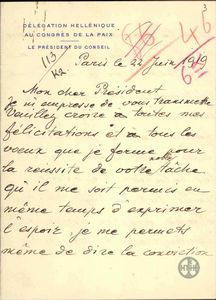 3
DÉLÉGATION HELLÉNIQUE
AU CONGRÈS DE LA PAIX
LE PRÉSIDENT DU CONSEIL
46
113
Paris le 22 juin 1919
Mon cher Président
Je m'empresse de vous transmettre
Veuillez croire à toutes mes
félicitations et à tous les
voeux que je forme pour
la réussite de votre tâche
qu'il me soit permis en
même temps d'exprimer
l'espoir, je me permets
même de dire la conviction